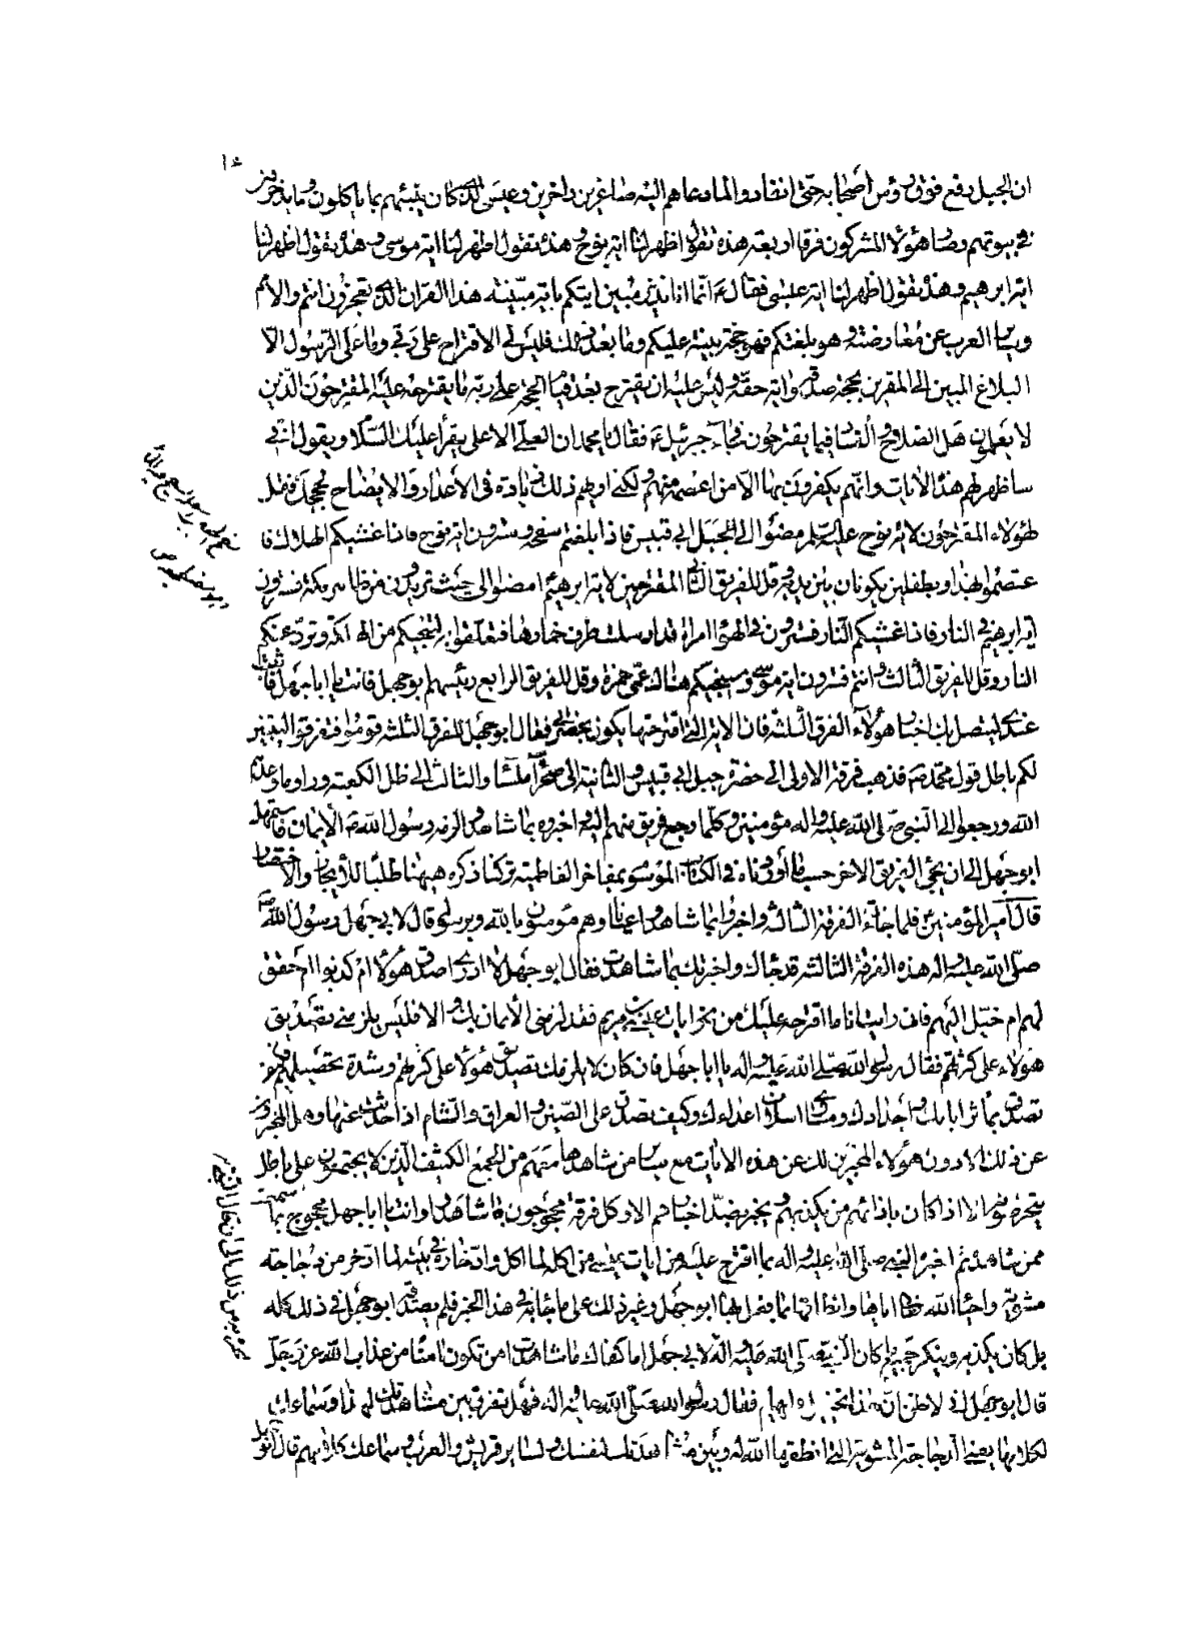 ان الجبل رفع فوق رؤس أصحابه حتى انقادوا لما دعاهم اليه صاغرين داخرين وعيسى الذي كان ينبئهم بما ياكلون وما يدخرون
في بيوتهم وصار هؤلاء المشركون فرقا اربعة هذه تقول اظهر لنا اية نوح وهذه تقول اظهر لنا اية موسى وهذه تقول اظهر لنا
اية ابرهيم وهذه تقول اظهر لنا اية عيسى فقال ع انما انا نذير مبين اتيتكم باية مبينة هذا القران الذي تعجزون انتم والامم
وسائر العرب عن معارضته وهو بلغتكم فهو حجة بينة عليكم وما بعد ذلك فليس لي الاقتراح على ربي وما على الرسول الا
البلاغ المبين الى المقرين بحجة صدقه واية حقه وليس عليه ان يقترح بعد قيام الحجة على ربه ما يقترحه عليه المقترحون الذين
لا يعلمون هل الصلاح او الفساد فيما يقترحون فجاء جبرئيل ع فقال يا محمد ان العلي الاعلى يقرأ عليك السلام ويقول اني
ساظهر لهم هذه الايات وانهم يكفرون بها الا من اعصمه منهم ولكني اريهم ذلك زيادة في الاعذار والايضاح لحججك فقل
لهؤلاء المقترحون لاية نوح عليه السلم امضوا الى جبل ابي قبيس فاذا بلغتم سفحه فسترون اية نوح فاذا غشيكم الهلاك فا
عتصموا بهذا وبطفلين يكونان بين يديه وقل للفريق الثاني المقترحين لاية ابرهيم امضوا الى حيث تريدون من ظاهر مكة فسترون
اية ابرهيم في النار فاذا غشيكم النار فسترون في الهواء امرأة قد ارسلت طرف خمارها فتعلقوا به لتنجيكم من الهلكة وترد عنكم
النار وقل للفريق الثالث وانتم فسترون اية موسى وسينجيكم هناك عمي حمزة وقل للفريق الرابع رئيسهم ابو جهل فانت يا ابا جهل فاثبت
عندي ليتصل بك اخبار هؤلاء الفرق الثلثة فان الاية التي اقترحتها يكون بحضرتي فقال ابو جهل للفرق الثلثة قوموا فتفرقوا ليتبين
لكم باطل قول محمد ص فذهب فرقة الاولى الى حضرة جبل ابي قبيس والثانية الى صحراء ملساء والثالث الى ظل الكعبة وراوا ما وعد
الله ورجعوا الى النبي صلى الله عليه واله مؤمنين وكلما رجع فريق منهم اليه اخبروه بما شاهدوا الزمه رسول الله ص الايمان فاستمهل
ابو جهل الى ان يجيئ الفريق الاخر حسب ما أوردناه في الكتاب الموسوم بمفاخر الفاطمية تركنا ذكره ههنا طلبا للايجاز والاختصار
قال أمير المؤمنين فلما جاءت الفرقة الثالثة واخبروا بما شاهدوا عيانا وهم مؤمنون بالله وبرسوله قال لابي جهل رسول الله
صلى الله عليه واله هذه الفرقة الثالثة قد جاءك واخبرتك بما شاهدت فقال ابو جهل لا ادري اصدق هؤلاء ام كذبوا ام حقق
لهم ام خيل اليهم فان رايت انا ما اقترحه عليك من نحو ايات عيسى بن مريم فقد لزمني الايمان بك والا فليس يلزمني تصديق
هؤلاء على كثرتهم فقال رسول الله صلى الله عليه واله يا ابا جهل فان كان لا يلزمك تصديق هؤلاء على كثرتهم وشدة تحصيلهم فكيف
تصدق بماثر ابائك واجدادك ومساوي اسلاف اعدائك وكيف تصدق على الصين والعراق والشام اذا حدثت عنها وهل المخبرون
عن ذلك الا دون هؤلاء المخبرين لك عن هذه الايات مع سائر من شاهدها منهم من الجمع الكثيف الذين لا يجتمعون على باطل
يتخرصونه الا اذا كان بازائهم من يكذبهم ويخبر بضد اخبارهم الا وكل فرقة محجوجون بما شاهدوا وانت يا ابا جهل محجوج بما سمعت
ممن شاهده ثم اخبره النبي صلى الله عليه واله بما اقترح عليه من ايات عيسى من اكله لما اكل وادخاره في بيته لما ادخر من دجاجة
مشوية واحياء الله تعالى اياها وانطاقها بما فعل بها ابو جهل وغير ذلك على ما جاء به في هذا الخبر فلم يصدقه ابو جهل في ذلك كله
بل كان يكذبه وينكر جميع ما كان النبي صلى الله عليه واله لابي جهل اما كفاك ما شاهدت ام تكون امنا من عذاب الله عز وجل
قال ابو جهل اني لاظن ان هذا تخييل وايهام فقال رسول الله صلى الله عليه واله فهل تفرق بين مشاهدتك لها وسماعك
لكلامها يعني الدجاجة المشوية التي انطقها الله له وبين مشاهدتك لنفسك ولسائر قريش والعرب وسماعك كلامهم قال ابو جهل